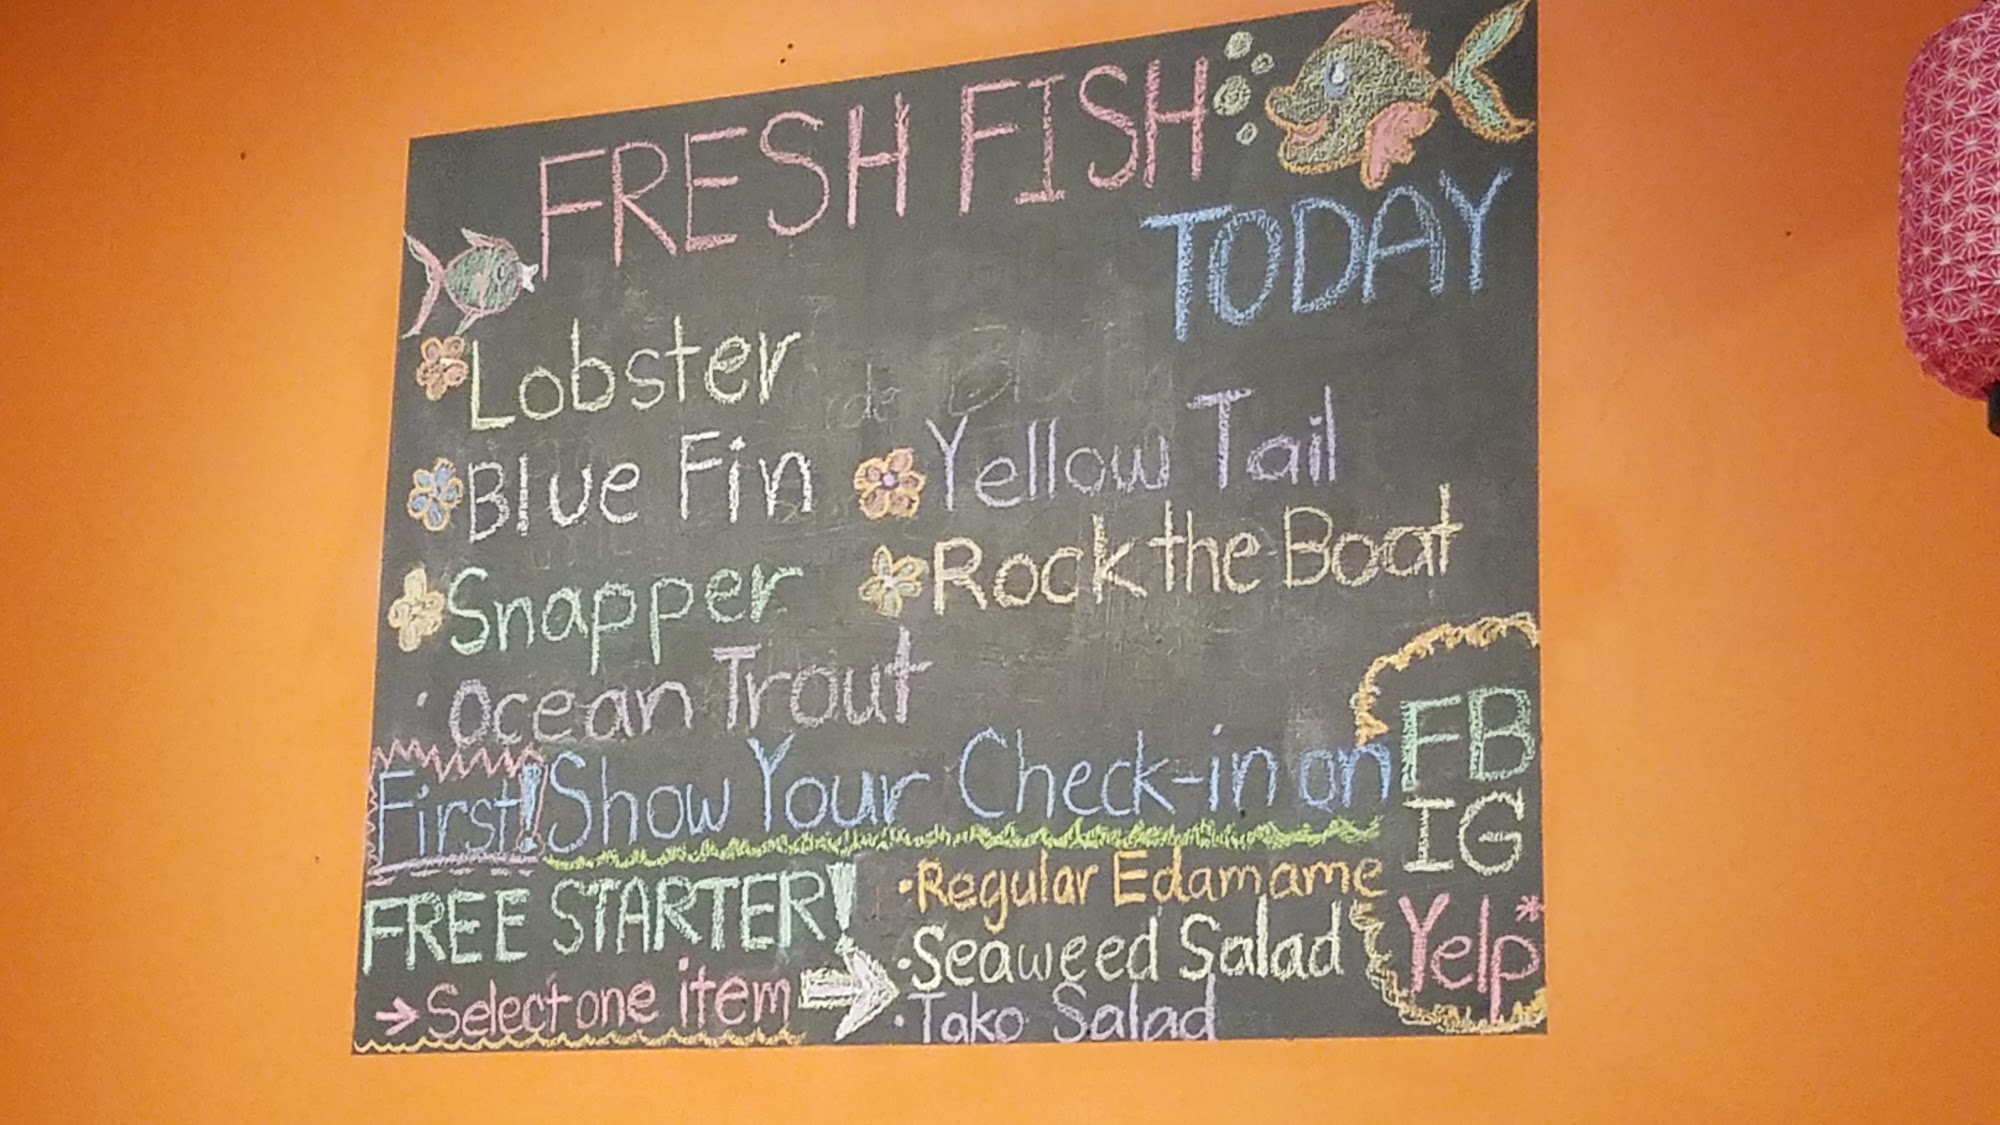 FRESH FISH
TODAY
Lobster
Blue Fin
Snapper
· Ocean Trout
Yellow Tail
Rock the Boat
First! Show Your Check-in on
FB
IG
Yelp*
FREE STARTER!
→ Select one item →
· Regular Edamame
· Seaweed Salad
· Tako Salad